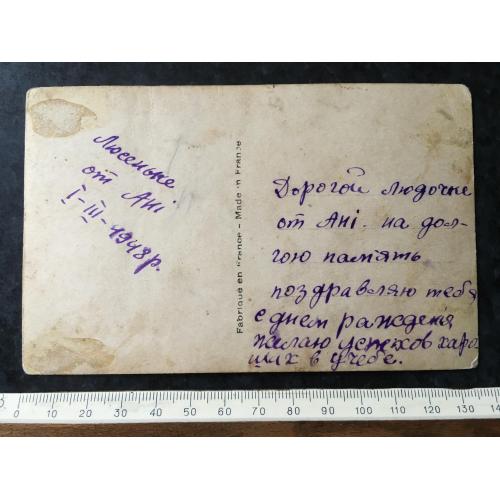 Люсеньке
от Ані
I-III-1948р.
Fabriqué en France - Made in France
Дорогой Людочке
от Ані. на дол-
гою память
поздравляю тебя
с днем ражденя
желаю успехов хара
ших в учебе.
0 10 20 30 40 50 60 70 80 90 100 110 120 130 14